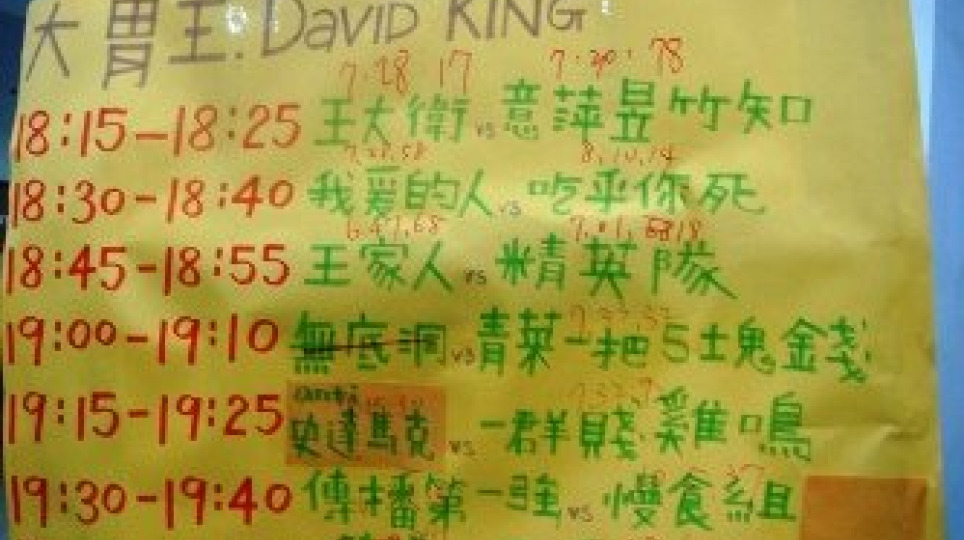 大胃王:David KING
7.28 17 7.30.78
18:15-18:25 王大衛 vs 意萍昱竹知口
7.28.58 8.10.14
18:30-18:40 我爱的人 vs 吃乎你死
6.47.68
18:45-18:55 王家人 vs 精英隊
19:00-19:10 無底洞 vs 青菜一把5土鬼金錢
19:15-19:25 史達馬克 vs 一群賤雞鳴
19:30-19:40 傳播第一強 vs 慢食組